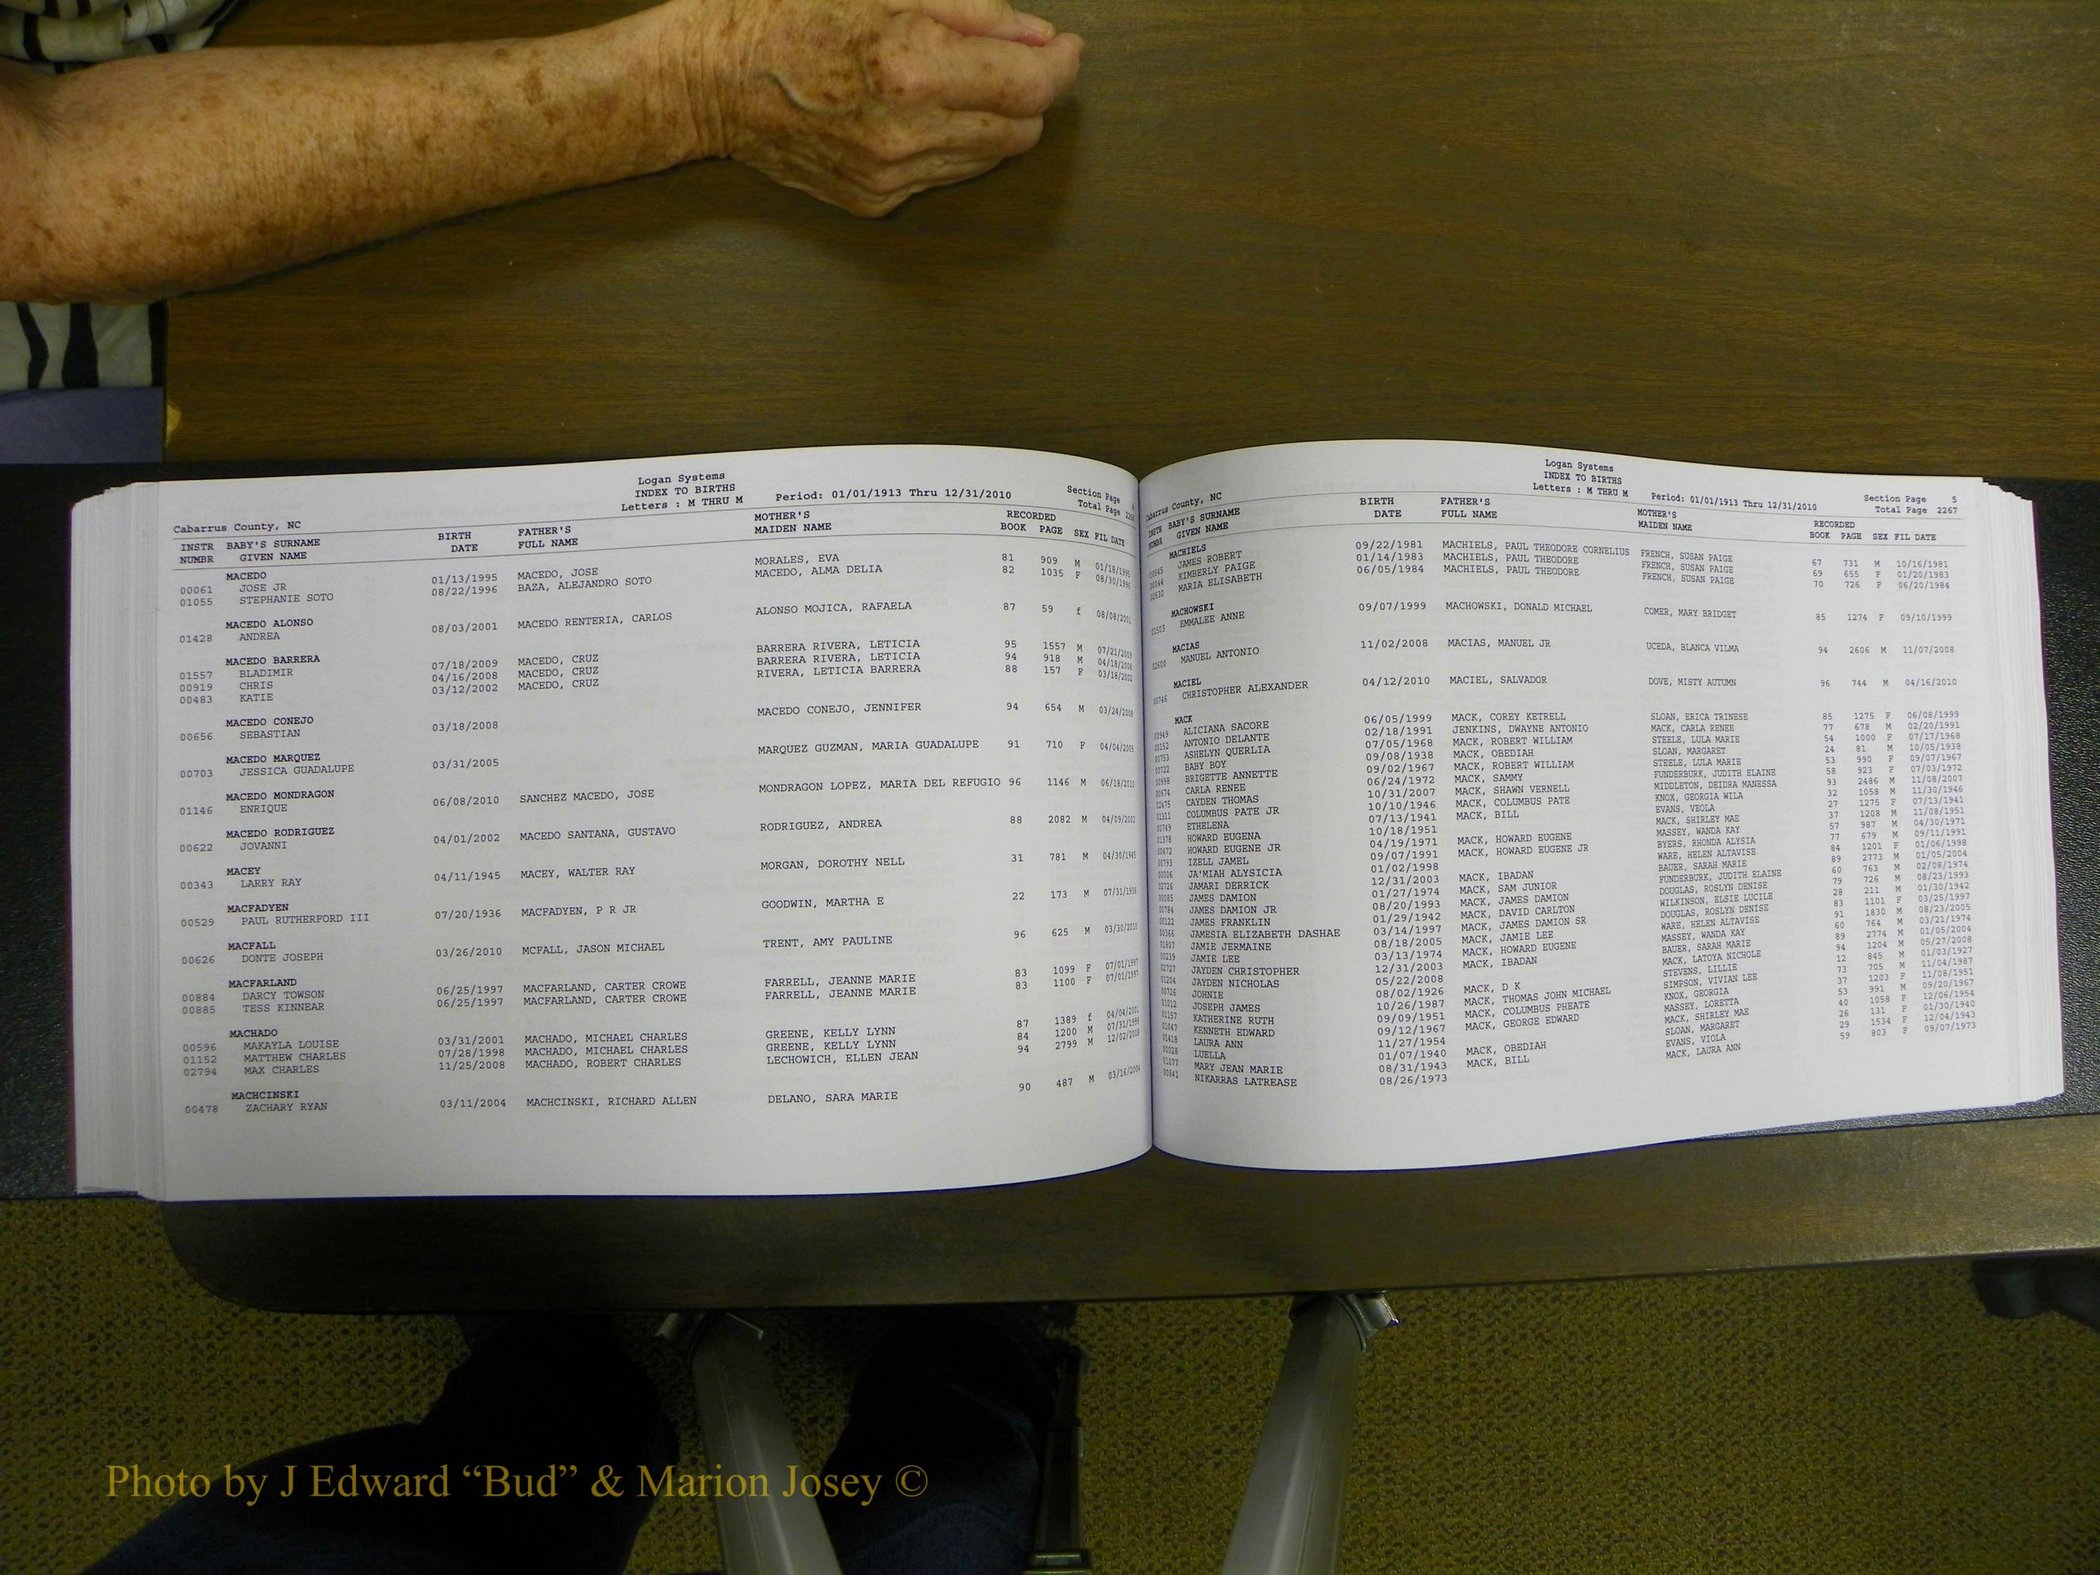 Logan Systems
INDEX TO BIRTHS
Letters : M THRU M Period: 01/01/1913 Thru 12/31/2010 Section Page
Cabarrus County, NC Total Page
INSTR BABY'S SURNAME BIRTH FATHER'S MOTHER'S RECORDED
NUMBR GIVEN NAME DATE FULL NAME MAIDEN NAME BOOK PAGE SEX FIL DATE
MACEDO
00061 JOSE JR 01/13/1995 MACEDO, JOSE MORALES, EVA 81 909 M 01/18/1995
01055 STEPHANIE SOTO 08/22/1996 BAZA, ALEJANDRO SOTO MACEDO, ALMA DELIA 82 1035 F 08/30/1996
MACEDO ALONSO
01428 ANDREA 08/03/2001 MACEDO RENTERIA, CARLOS ALONSO MOJICA, RAFAELA 87 59 f 08/08/2001
MACEDO BARRERA
01557 BLADIMIR 07/18/2009 MACEDO, CRUZ BARRERA RIVERA, LETICIA 95 1557 M 07/21/2009
00919 CHRIS 04/16/2008 MACEDO, CRUZ BARRERA RIVERA, LETICIA 94 918 M 04/18/2008
00483 KATIE 03/12/2002 MACEDO, CRUZ RIVERA, LETICIA BARRERA 88 157 F 03/18/2002
MACEDO CONEJO
00656 SEBASTIAN 03/18/2008 MACEDO CONEJO, JENNIFER 94 654 M 03/24/2008
MACEDO MARQUEZ
00703 JESSICA GUADALUPE 03/31/2005 MARQUEZ GUZMAN, MARIA GUADALUPE 91 710 F 04/04/2005
MACEDO MONDRAGON
01146 ENRIQUE 06/08/2010 SANCHEZ MACEDO, JOSE MONDRAGON LOPEZ, MARIA DEL REFUGIO 96 1146 M 06/18/2010
MACEDO RODRIGUEZ
00622 JOVANNI 04/01/2002 MACEDO SANTANA, GUSTAVO RODRIGUEZ, ANDREA 88 2082 M 04/09/2002
MACEY
00343 LARRY RAY 04/11/1945 MACEY, WALTER RAY MORGAN, DOROTHY NELL 31 781 M 04/30/1945
MACFADYEN
00529 PAUL RUTHERFORD III 07/20/1936 MACFADYEN, P R JR GOODWIN, MARTHA E 22 173 M 07/31/1936
MACFALL
00626 DONTE JOSEPH 03/26/2010 MCFALL, JASON MICHAEL TRENT, AMY PAULINE 96 625 M 03/30/2010
MACFARLAND
00884 DARCY TOWSON 06/25/1997 MACFARLAND, CARTER CROWE FARRELL, JEANNE MARIE 83 1099 F 07/01/1997
00885 TESS KINNEAR 06/25/1997 MACFARLAND, CARTER CROWE FARRELL, JEANNE MARIE 83 1100 F 07/01/1997
MACHADO
00596 MAKAYLA LOUISE 03/31/2001 MACHADO, MICHAEL CHARLES GREENE, KELLY LYNN 87 1389 f 04/04/2001
01152 MATTHEW CHARLES 07/28/1998 MACHADO, MICHAEL CHARLES GREENE, KELLY LYNN 84 1200 M 07/31/1998
02794 MAX CHARLES 11/25/2008 MACHADO, ROBERT CHARLES LECHOWICH, ELLEN JEAN 94 2799 M 12/02/2008
MACHCINSKI
00478 ZACHARY RYAN 03/11/2004 MACHCINSKI, RICHARD ALLEN DELANO, SARA MARIE 90 487 M 03/16/2004
Logan Systems
INDEX TO BIRTHS
Letters : M THRU M Period: 01/01/1913 Thru 12/31/2010 Section Page 5
County, NC Total Page 2267
INSTR BABY'S SURNAME BIRTH FATHER'S MOTHER'S RECORDED
NUMBR GIVEN NAME DATE FULL NAME MAIDEN NAME BOOK PAGE SEX FIL DATE
MACHIELS
JAMES ROBERT 09/22/1981 MACHIELS, PAUL THEODORE CORNELIUS FRENCH, SUSAN PAIGE 67 731 M 10/16/1981
KIMBERLY PAIGE 01/14/1983 MACHIELS, PAUL THEODORE FRENCH, SUSAN PAIGE 69 655 F 01/20/1983
MARIA ELISABETH 06/05/1984 MACHIELS, PAUL THEODORE FRENCH, SUSAN PAIGE 70 726 F 06/20/1984
MACHOWSKI
EMMALEE ANNE 09/07/1999 MACHOWSKI, DONALD MICHAEL COMER, MARY BRIDGET 85 1274 F 09/10/1999
MACIAS
MANUEL ANTONIO 11/02/2008 MACIAS, MANUEL JR UCEDA, BLANCA VILMA 94 2606 M 11/07/2008
MACIEL
CHRISTOPHER ALEXANDER 04/12/2010 MACIEL, SALVADOR DOVE, MISTY AUTUMN 96 744 M 04/16/2010
MACK
ALICIANA SACORE 06/05/1999 MACK, COREY KETRELL SLOAN, ERICA TRINESE 85 1275 F 06/08/1999
ANTONIO DELANTE 02/18/1991 JENKINS, DWAYNE ANTONIO MACK, CARLA RENEE 77 678 M 02/20/1991
ASHELYN QUERLIA 07/05/1968 MACK, ROBERT WILLIAM STEELE, LULA MARIE 54 1000 F 07/17/1968
BABY BOY 09/08/1938 MACK, OBEDIAH SLOAN, MARGARET 24 81 M 10/05/1938
BRIGETTE ANNETTE 09/02/1967 MACK, ROBERT WILLIAM STEELE, LULA MARIE 53 990 F 09/07/1967
CARLA RENEE 06/24/1972 MACK, SAMMY FUNDERBURK, JUDITH ELAINE 58 923 F 07/03/1972
CAYDEN THOMAS 10/31/2007 MACK, SHAWN VERNELL MIDDLETON, DEIDRA MANESSA 93 2486 M 11/08/2007
COLUMBUS PATE JR 10/10/1946 MACK, COLUMBUS PATE KNOX, GEORGIA WILA 32 1058 M 11/30/1946
ETHELENA 07/13/1941 MACK, BILL EVANS, VEOLA 27 1275 F 07/13/1941
HOWARD EUGENA 10/18/1951 MACK, SHIRLEY MAE 37 1208 M 11/08/1951
HOWARD EUGENE JR 04/19/1971 MACK, HOWARD EUGENE MASSEY, WANDA KAY 57 987 M 04/30/1971
IZELL JAMEL 09/07/1991 MACK, HOWARD EUGENE JR BYERS, RHONDA ALYSIA 77 679 M 09/11/1991
JA'MIAH ALYSICIA 01/02/1998 WARE, HELEN ALTAVISE 84 1201 F 01/06/1998
JAMARI DERRICK 12/31/2003 MACK, IBADAN BAUER, SARAH MARIE 89 2773 M 01/05/2004
JAMES DAMION 01/27/1974 MACK, SAM JUNIOR FUNDERBURK, JUDITH ELAINE 60 763 M 02/08/1974
JAMES DAMION JR 08/20/1993 MACK, JAMES DAMION DOUGLAS, ROSLYN DENISE 79 726 M 08/23/1993
JAMES FRANKLIN 01/29/1942 MACK, DAVID CARLTON WILKINSON, ELSIE LUCILE 28 211 M 01/30/1942
JAMESIA ELIZABETH DASHAE 03/14/1997 MACK, JAMES DAMION SR DOUGLAS, ROSLYN DENISE 83 1101 F 03/25/1997
JAMIE JERMAINE 08/18/2005 MACK, JAMIE LEE WARE, HELEN ALTAVISE 91 1830 M 08/23/2005
JAMIE LEE 03/13/1974 MACK, HOWARD EUGENE MASSEY, WANDA KAY 60 764 M 03/21/1974
JAYDEN CHRISTOPHER 12/31/2003 MACK, IBADAN BAUER, SARAH MARIE 89 2774 M 01/05/2004
JAYDEN NICHOLAS 05/22/2008 MACK, LATOYA NICHOLE 94 1204 M 05/27/2008
JOHNIE 08/02/1926 MACK, D K STEVENS, LILLIE 12 845 M 01/03/1927
JOSEPH JAMES 10/26/1987 MACK, THOMAS JOHN MICHAEL SIMPSON, VIVIAN LEE 73 705 M 11/04/1987
KATHERINE RUTH 09/09/1951 MACK, COLUMBUS PHEATE KNOX, GEORGIA 37 1203 F 11/08/1951
KENNETH EDWARD 09/12/1967 MACK, GEORGE EDWARD MASSEY, LORETTA 53 991 M 09/20/1967
LAURA ANN 11/27/1954 MACK, SHIRLEY MAE 40 1058 F 12/06/1954
LUELLA 01/07/1940 MACK, OBEDIAH SLOAN, MARGARET 26 131 F 01/30/1940
MARY JEAN MARIE 08/31/1943 MACK, BILL EVANS, VIOLA 29 1534 F 12/04/1943
NIKARRAS LATREASE 08/26/1973 MACK, LAURA ANN 59 803 F 09/07/1973
Photo by J Edward “Bud” & Marion Josey ©